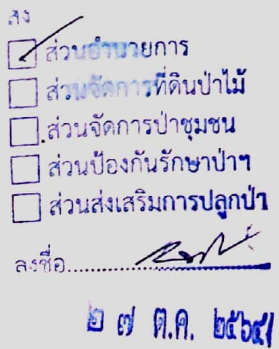 ส่ง
ส่วนอำนวยการ
ส่วนจัดการที่ดินป่าไม้
ส่วนจัดการป่าชุมชน
ส่วนป้องกันรักษาป่าฯ
ส่วนส่งเสริมการปลูกป่า
ลงชื่อ....................
๒ ๗ ต.ค. ๒๕๖๔